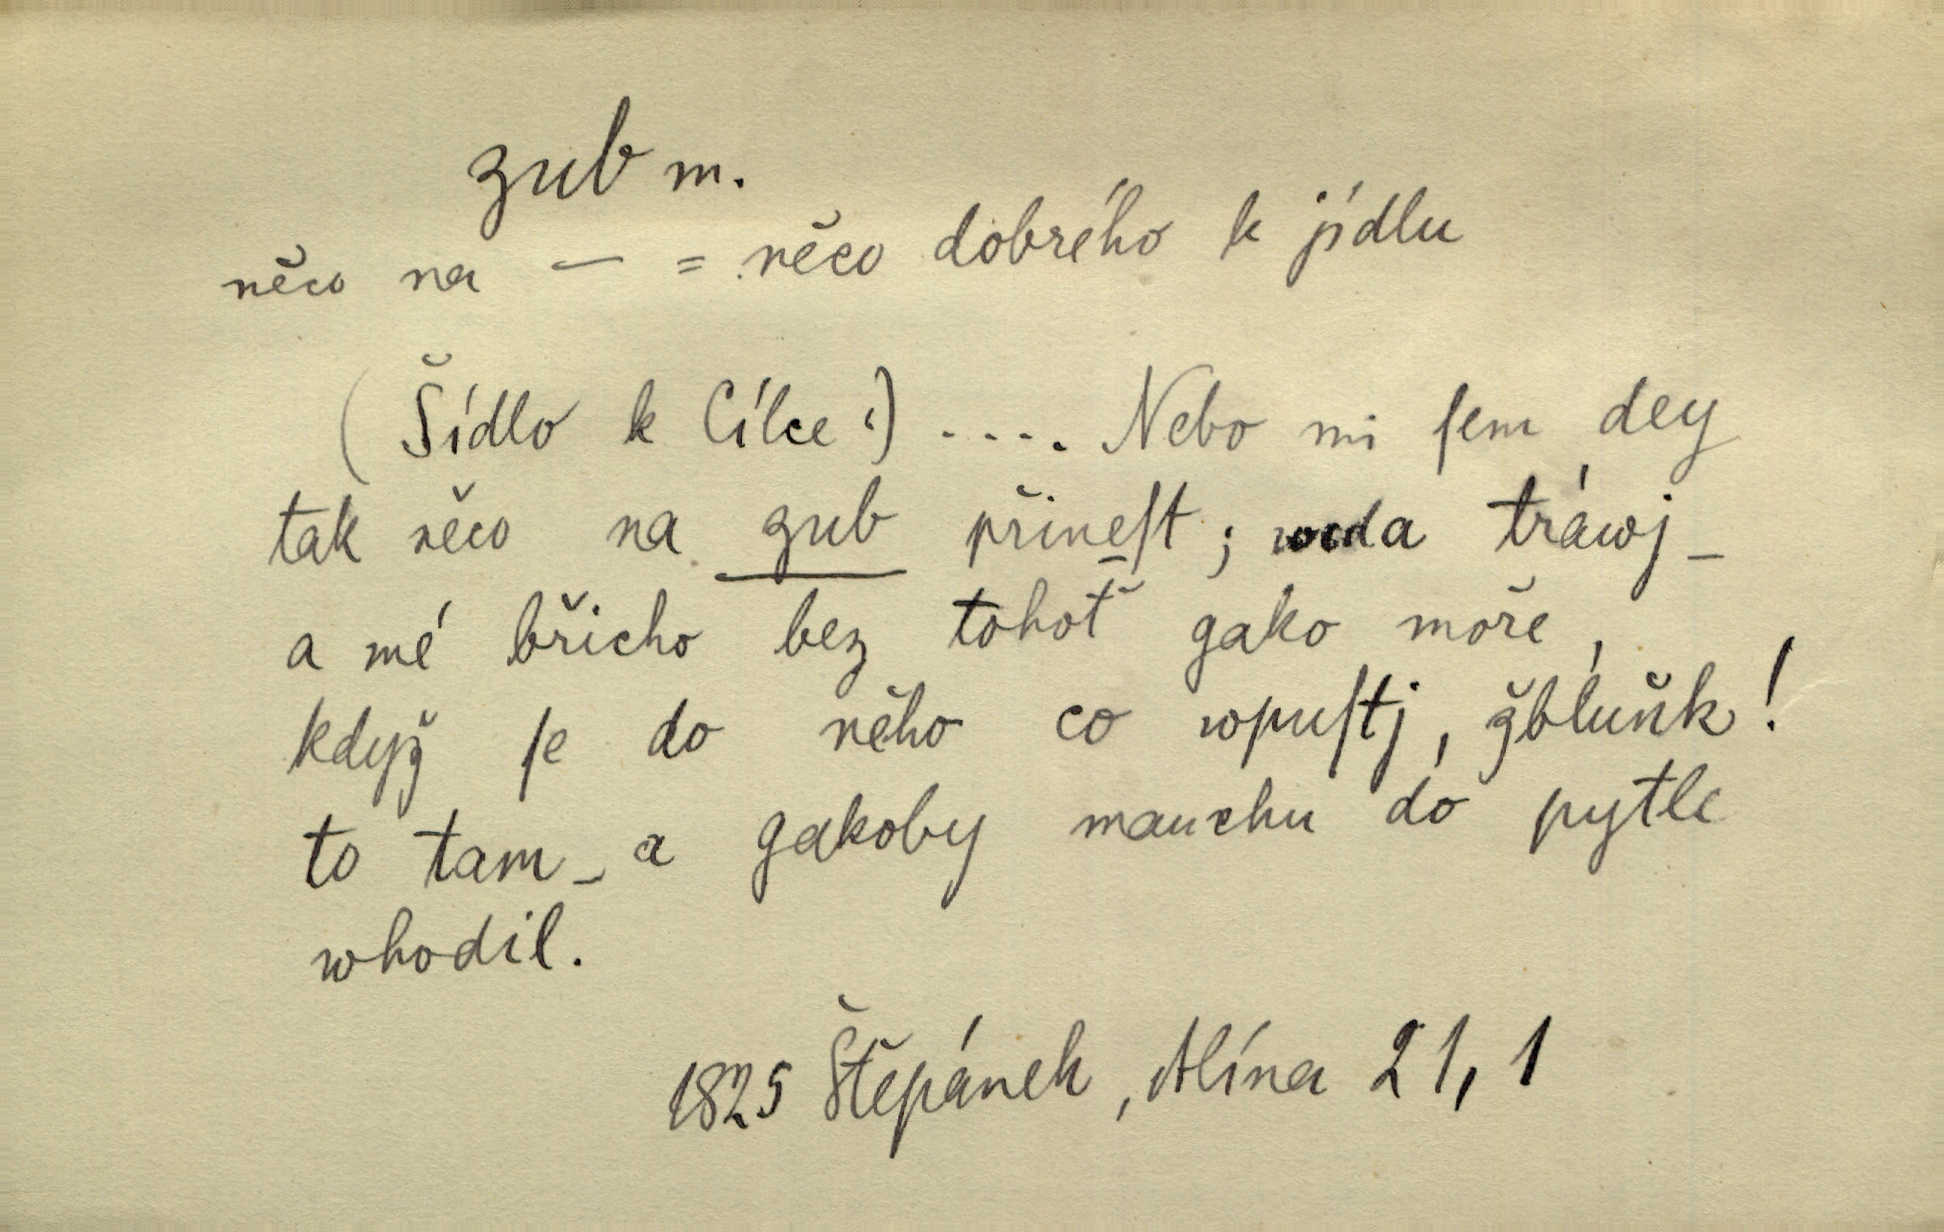 zub m.
něco na — = něco dobrého k jídlu
(Šídlo k Cílce:) ..... Nebo mi ſem dey
tak něco na zub přineſt; woda tráwj –
a mé břicho bez tohoť gako moře,
když ſe do něho co wpuſtj, žbluňk!
to tam – a gakoby mauchu do pytle
whodil.
1825 Štěpánek, Alína 21, 1